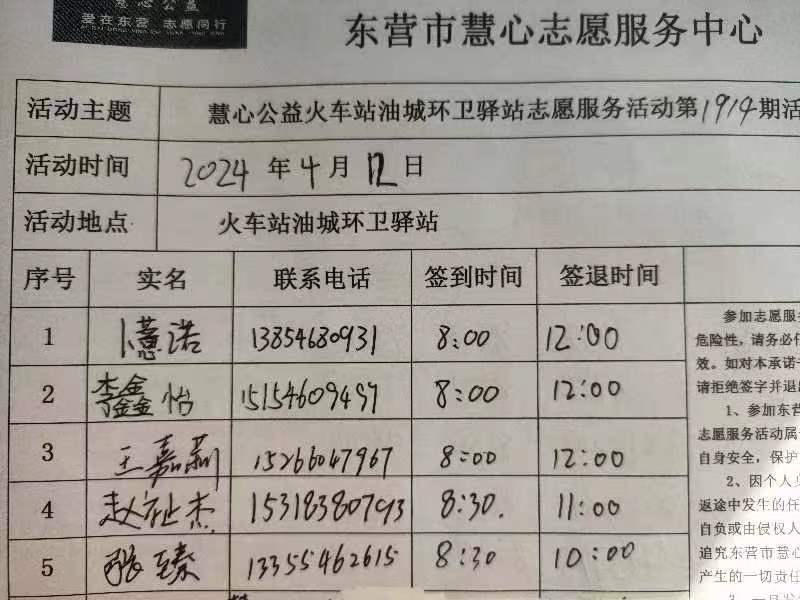 慧心公益
爱在东营 志愿同行
东营市慧心志愿服务中心
活动主题 慧心公益火车站油城环卫驿站志愿服务活动第1914期活
活动时间 2024年4月12日
活动地点 火车站油城环卫驿站
序号 实名 联系电话 签到时间 签退时间
1 卜慧诺 13854680931 8:00 12:00
2 李鑫怡 15154609497 8:00 12:00
3 王嘉莉 15266047967 8:00 12:00
4 赵 杰 15318380793 8:30. 11:00
5 张臻 13355462615 8:30 10:00
参加志愿服
危险性，请务必仔
效。如对本承诺书
请拒绝签字并退出
1、参加东营
志愿服务活动属
自身安全，保护
2、因个人
返途中发生的任
自负或由侵权人
追究东营市慧心
产生的一切责任